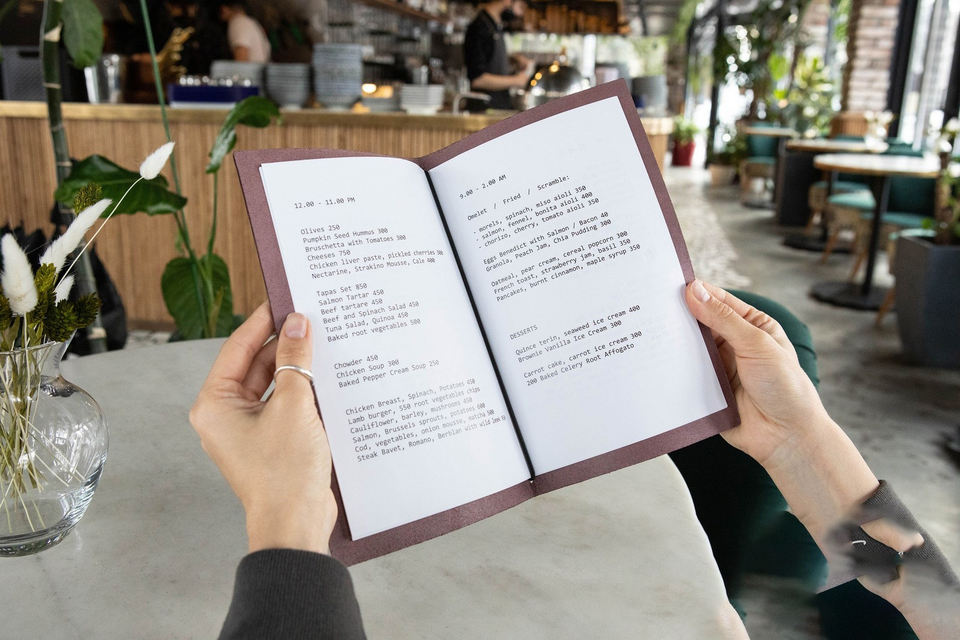 12.00 - 11.00 PM
Olives 250
Pumpkin Seed Hummus 300
Bruschetta with Tomatoes 300
Cheeses 750
Chicken liver paste, pickled cherries
Nectarine, Strakino Mousse, Cale 400
Tapas Set 850
Salmon Tartar 450
Beef tartare 450
Beef and Spinach Salad 450
Tuna Salad, Quinoa 450
Baked root vegetables 500
Chowder 450
Chicken Soup 300
Baked Pepper Cream Soup 250
Chicken Breast, Spinach, Potatoes 450
Lamb burger, 550 root vegetables chips
Cauliflower, barley, mushrooms 450
Salmon, Brussels sprouts, potatoes 600
Cod, vegetables, onion mousse, matcha 500
Steak Bavet, Romano, Berblan with wild
9.00 - 2.00 AM
Omelet / Fried / Scramble:
. morels, spinach, miso aioli 350
. salmon, fennel, bonita aioli 400
. chorizo, cherry, tomato aioli 350
Eggs Benedict with Salmon / Bacon 40
Granola, Peach Jam, Chia Pudding 300
Oatmeal, pear cream, cereal popcorn 300
French toast, strawberry jam, basil 350
Pancakes, burnt cinnamon, maple syrup 350
DESSERTS
Quince terin, seaweed ice cream 400
Brownie Vanilla Ice Cream 300
Carrot cake, carrot ice cream 300
200 Baked Celery Root Affogato